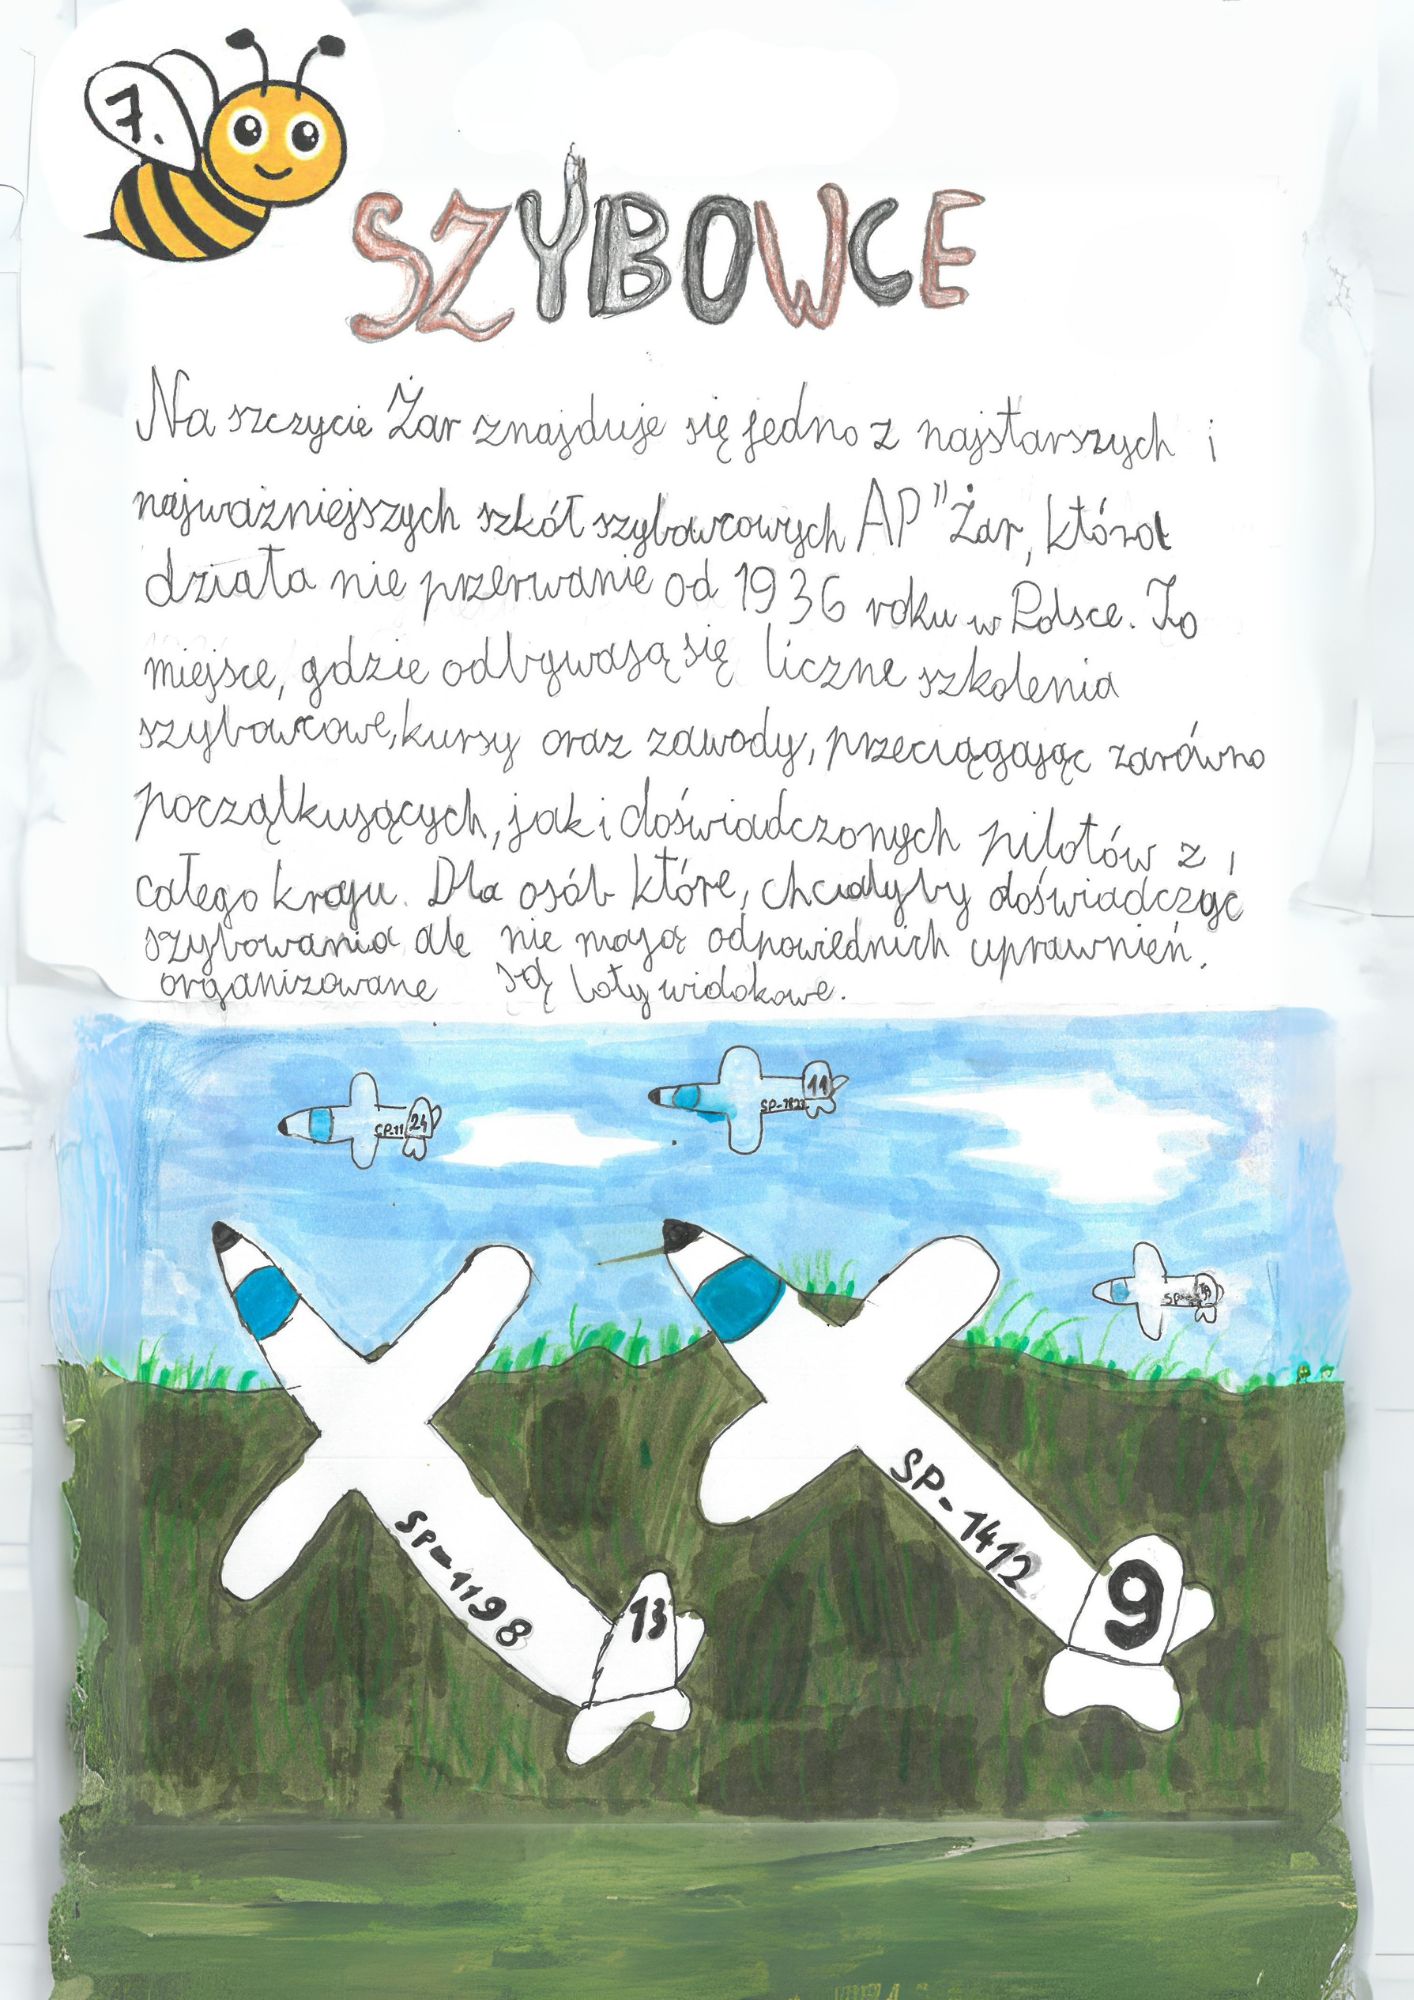 7.
SZYBOWCE
Na szczycie Żar znajduje się jedno z najstarszych i
najważniejszych szkół szybowcowych AP "Żar, która
działa nie przerwanie od 1936 roku w Polsce. To
miejsce, gdzie odbywają się liczne szkolenia
szybowcowe, kursy oraz zawody, przeciągając zarówno
początkujących, jak i doświadczonych pilotów z
całego kraju. Dla osób które, chciałyby doświadczyć
szybowania ale nie mają odpowiednich uprawnień.
organizowane są loty widokowe.
SP-11 24
SP-1823 11
SP-
SP-1198
13
SP-1412
9